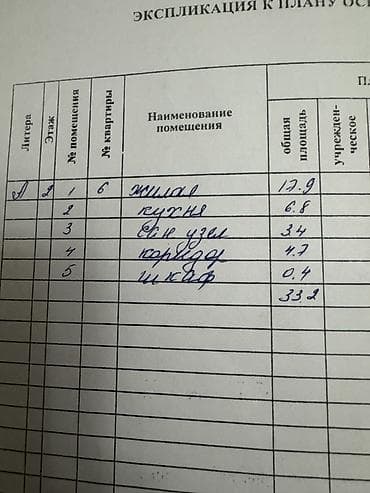 ЭКСПЛИКАЦИЯ К ПЛАНУ
Литера Этаж № помещения № квартиры Наименование помещения общая площадь учрежден-ческое
А 2 1 6 жилая 17.9
2 кухня 6.8
3 сан узел 3.4
4 коридор 4.7
5 шкаф 0.4
33.2